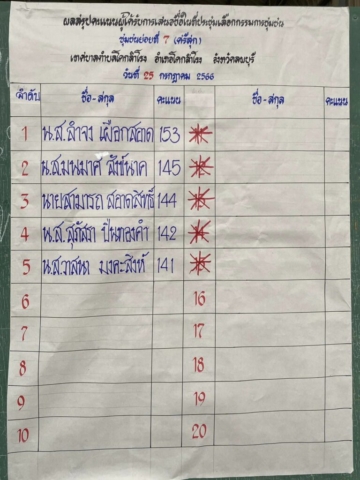 ผลสรุปคะแนนผู้ได้รับการเสนอชื่อในที่ประชุมเลือกกรรมการชุมชน
ชุมชนย่อยที่ 7 (ศรีสุก)
เทศบาลตำบลโคกสำโรง อำเภอโคกสำโรง จังหวัดลพบุรี
วันที่ 25 กรกฎาคม 2566
ลำดับ ชื่อ-สกุล คะแนน ชื่อ-สกุล คะแนน
1 น.ส.ลำจง เผือกสอาด 153
2 น.ส.มนมาศ สังข์นาค 145
3 นายสามารถ สอาดสิทธิ์ 144
4 น.ส.สุภัสรา ปิ่นทองคำ 142
5 น.ส.วาสนา มงคะสิงห์ 141
6 16
7 17
8 18
9 19
10 20